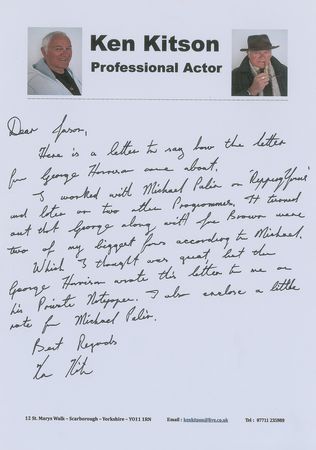 Ken Kitson
Professional Actor
Dear Jason,
Here is a letter to say how the letter
from George Harrison came about.
I worked with Michael Palin on 'Ripping Yarns'
and later on two other Programmes. It turned
out that George along with Joe Brown were
two of my biggest fans according to Michael.
Which I thought was great, but then
George Harrison wrote this letter to me on
his Private Notepaper. I also enclose a little
note from Michael Palin.
Best Regards
Ken Kitson
12 St. Marys Walk – Scarborough – Yorkshire – YO11 1RN Email : kenkitson@live.co.uk Tel : 07711 235989